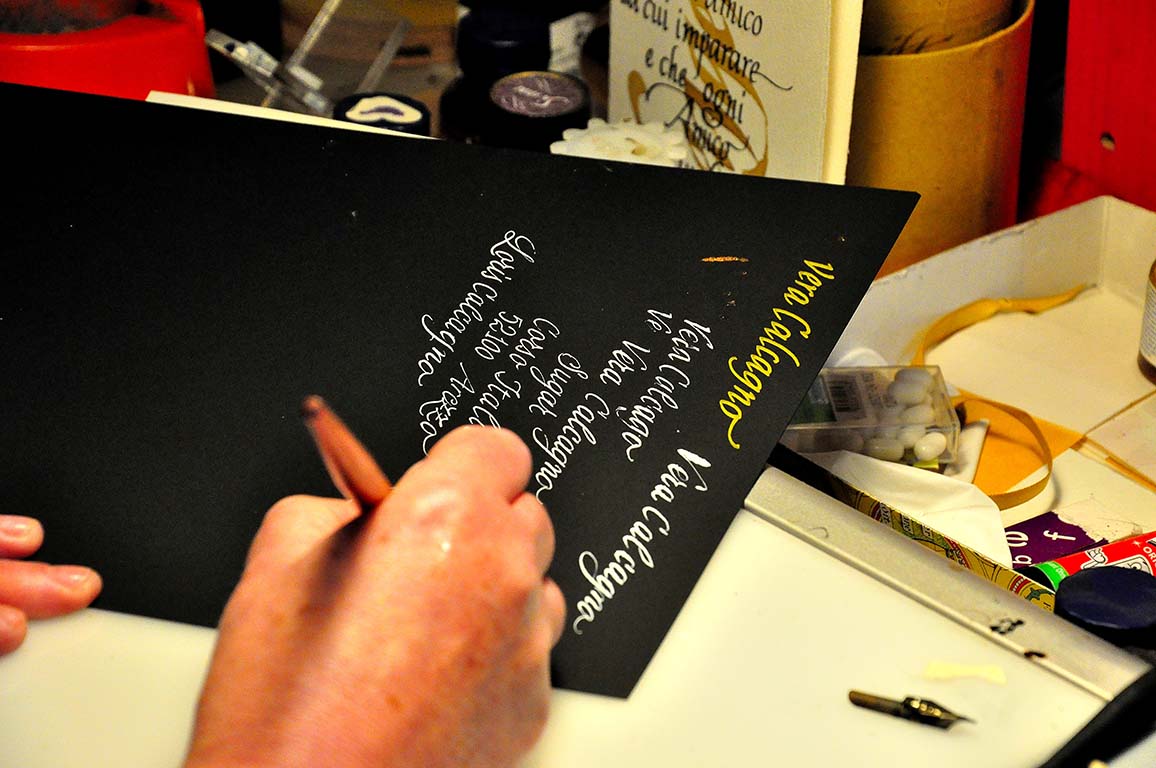 amico
da cui imparare
e che ogni
Amico
Vera Calcagno
Vera Calcagno
Ve Vera Calcagno
Vera Calcagno
Sugar
Corso Ital
52100 Arezzo
Loris Calcagno